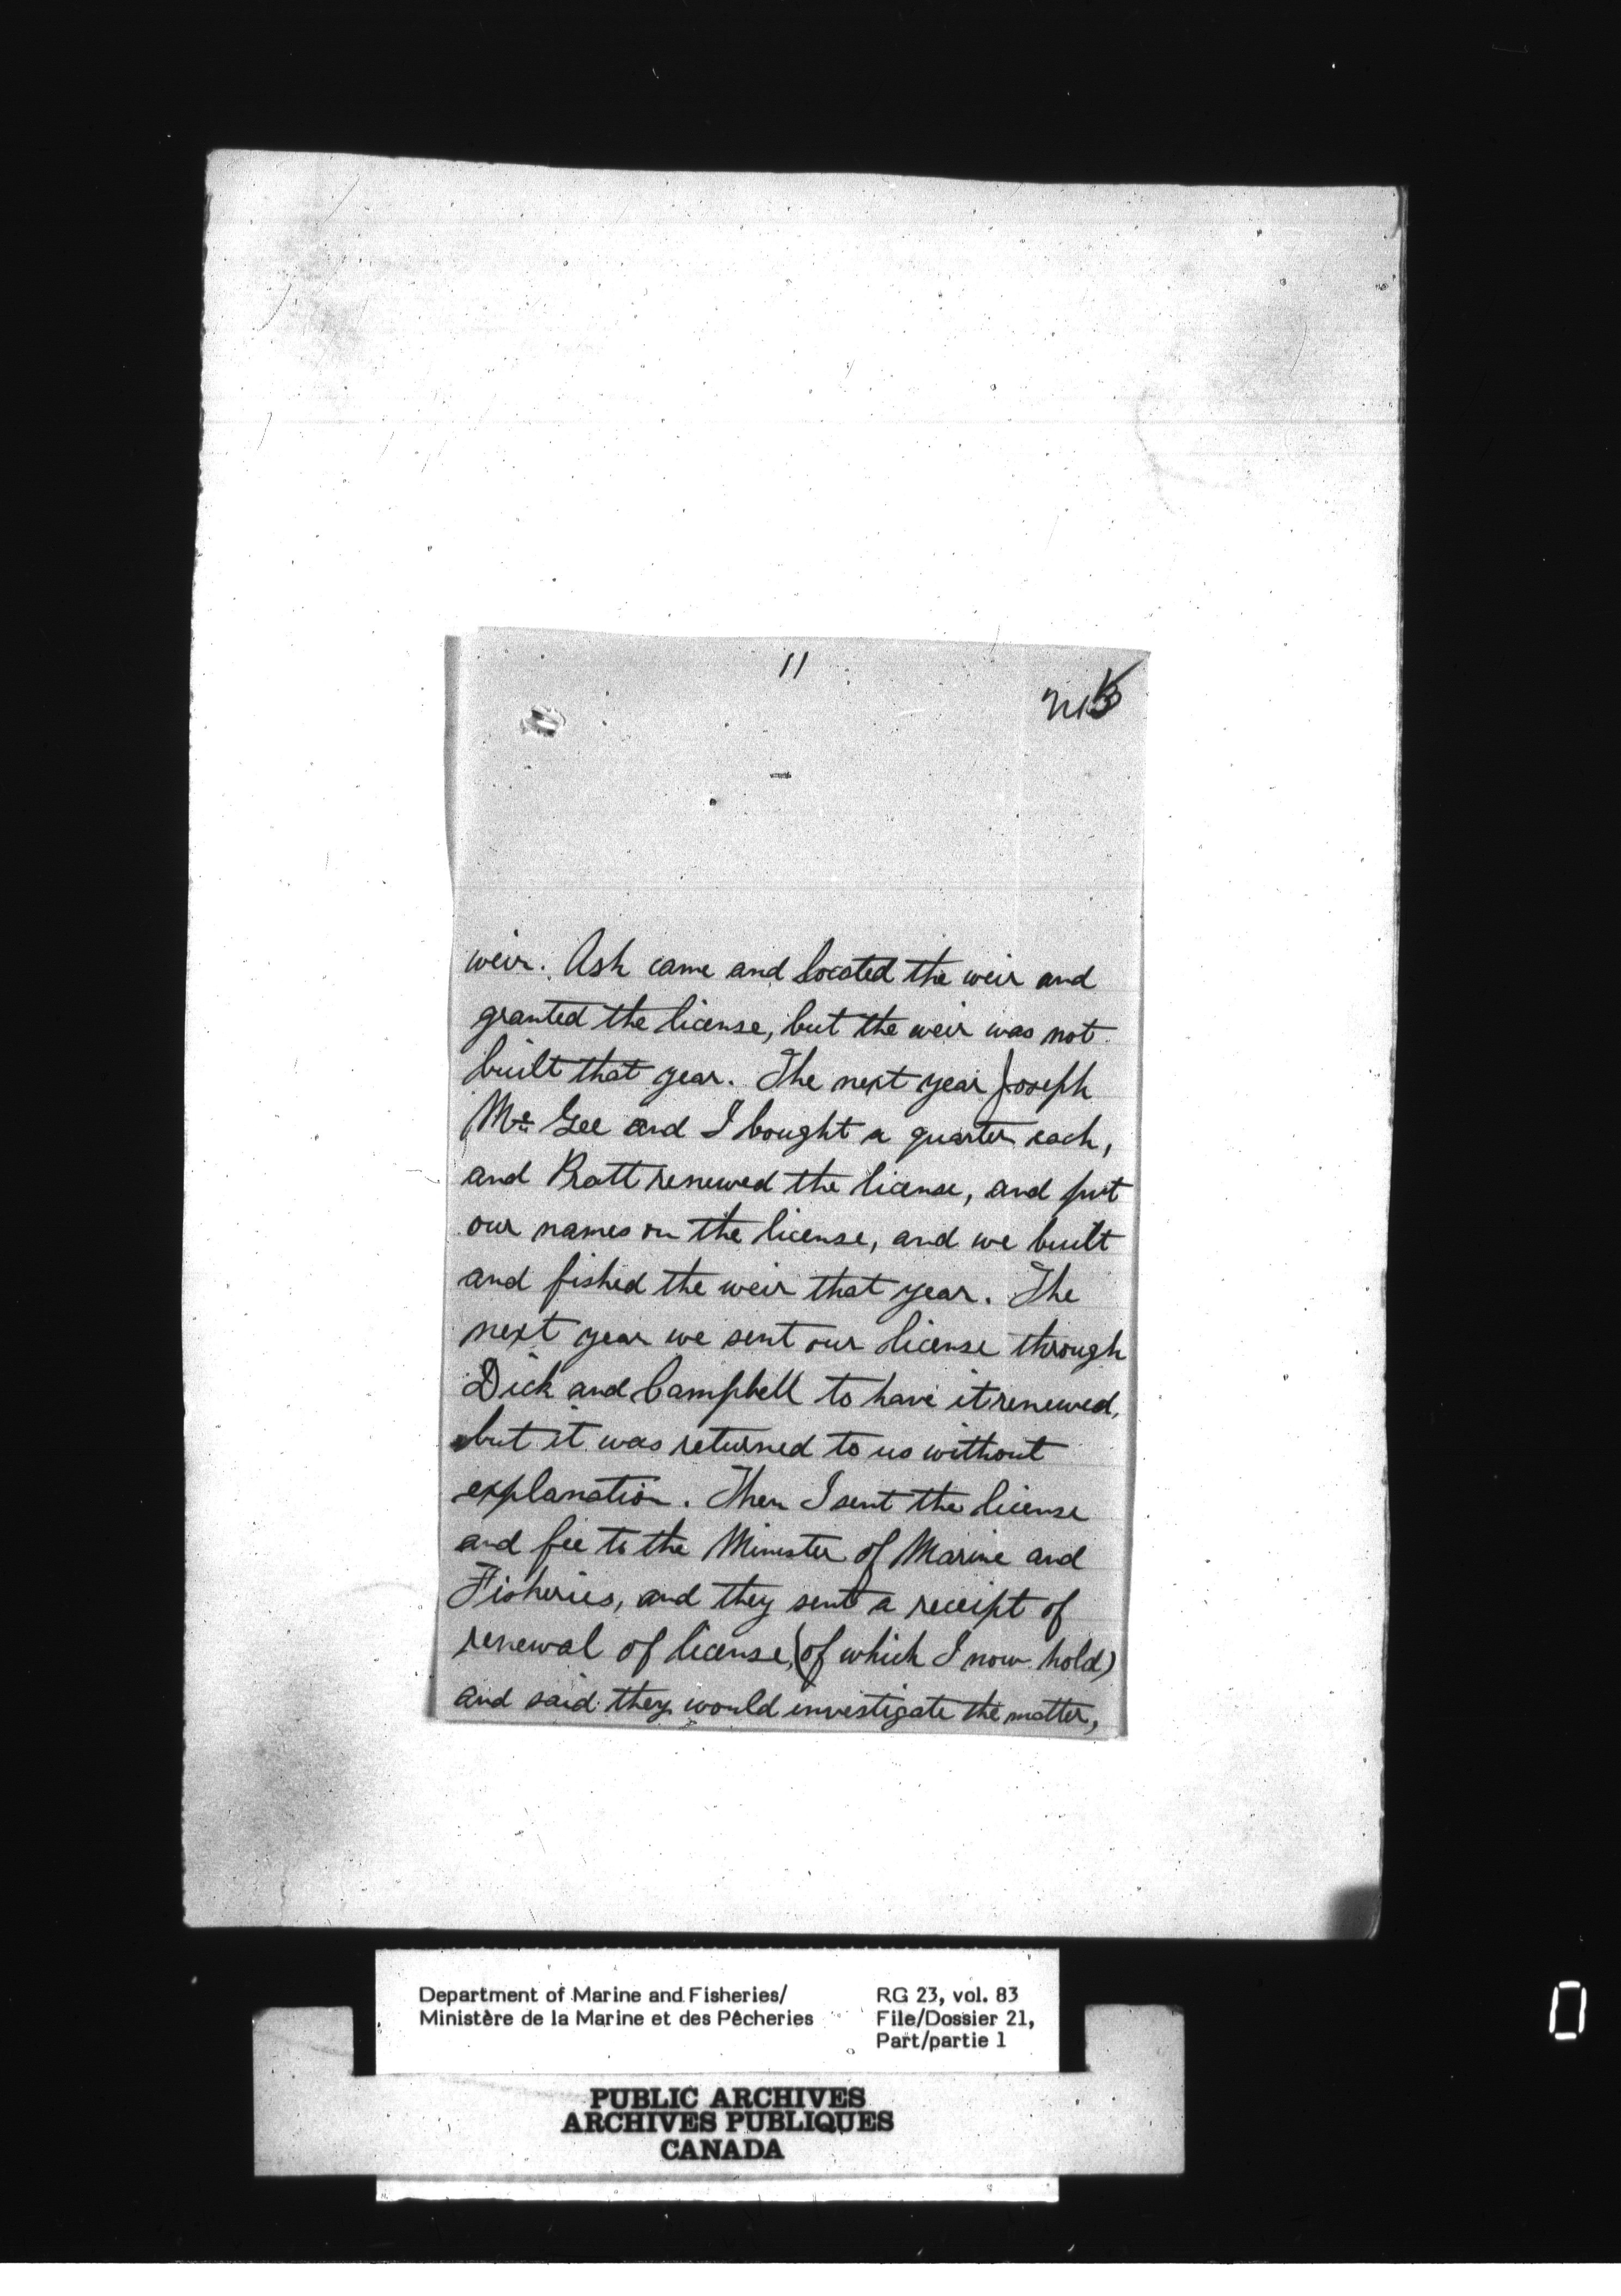 11
weir. Ash came and located the weir and
granted the license, but the weir was not
built that year. The next year Joseph
Mc Gee and I bought a quarter each,
and Pratt renewed the license, and put
our names on the license, and we built
and fished the weir that year. The
next year we sent our license through
Dick and Campbell to have it renewed,
but it was returned to us without
explanation. Then I sent the license
and fee to the Minister of Marine and
Fisheries, and they sent a receipt of
renewal of license, (of which I now hold)
and said they would investigate the matter,
Department of Marine and Fisheries/ RG 23, vol. 83
Ministère de la Marine et des Pêcheries File/Dossier 21,
Part/partie 1
PUBLIC ARCHIVES
ARCHIVES PUBLIQUES
CANADA